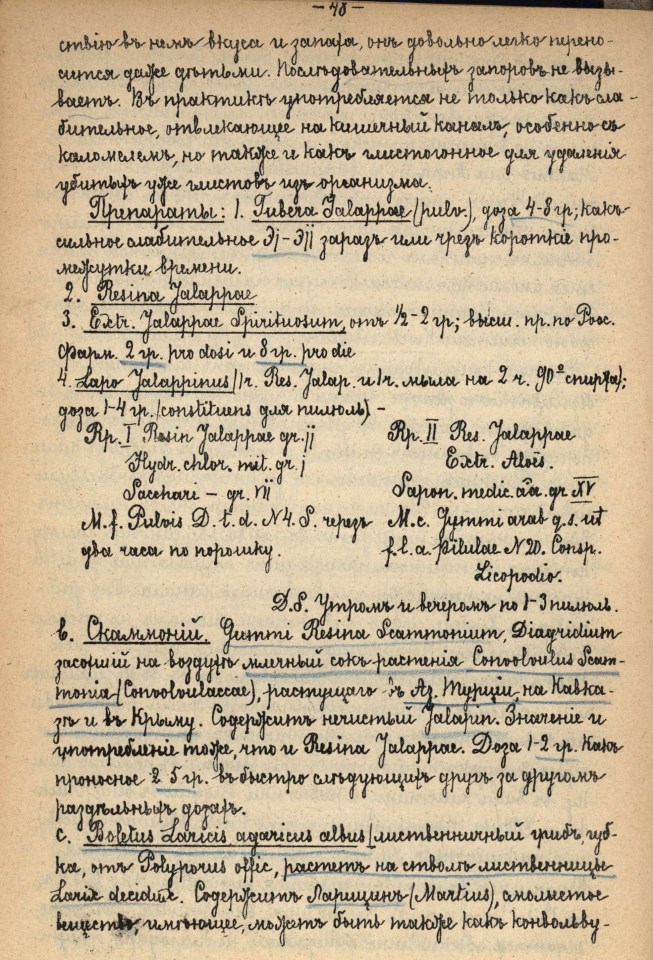 — 48 —
ствію въ немъ вкуса и запаха, онъ довольно легко перено-
сится даже дѣтьми. Послѣдовательныхъ запоровъ не вызы-
ваетъ. Въ практикѣ употребляется не только какъ сла-
бительное, отвлекающее на кишечный каналъ, особенно съ
каломелемъ, но также и какъ глистогонное для удаленія
убитыхъ уже глистовъ изъ организма.
Препараты: 1. Tubera Jalappae (pulv.), доза 4-8 гр; какъ
сильное слабительное Эj-Эjj заразъ или чрезъ короткіе про-
межутки времени.
2. Resina Jalappae
3. Extr. Jalappae Spirituosum, отъ 1/2-2 гр; высш. пр. по Росс.
Фарм. 2 гр. pro dosi и 8 гр. pro die
4. Sapo Jalappinus (1 ч. Res. Jalap. и 1 ч. мыла на 2 ч. 90° спирта);
доза 1-4 гр. (constituens для пилюль) -
Rp. I Resin Jalappae gr. jj
Hydr. chlor. mit. gr. j
Sacchari - gr. vii
M. f. Pulvis D. t. d. N4. S. черезъ
два часа по порошку.
Rp. II Res. Jalappae
Extr. Aloës.
Sapon. medic. aa. gr XV
M. c. Gymmi arab q. s. ut
f. l. a. pilulae N 20. Consp.
Licopodio.
D.S. Утромъ и вечеромъ по 1-3 пилюль.
в. Скаммоній. Gummi Resina Scammonium, Diagridium
засохшій на воздухѣ млечный сокъ растенія Convolvulus Scam-
monia (Convolvulaccae), растущаго въ Аз. Турціи, на Кавка-
зѣ и въ Крыму. Содержитъ нечистый Jalapin. Значеніе и
употребленіе тоже, что и Resina Jalappae. Доза 1-2 гр. Какъ
проносное 2 5 гр. въ быстро слѣдующихъ другъ за другомъ
раздѣльныхъ дозахъ.
с. Boletus Laricis, agaricus albus (лиственничный грибъ, губ-
ка, отъ Polyporus offic, растетъ на стволѣ лиственницы
Larix deciduc. Содержитъ Ларицинъ (Martius), смолистое
вещество, имѣющее, можетъ быть также какъ конвольву-